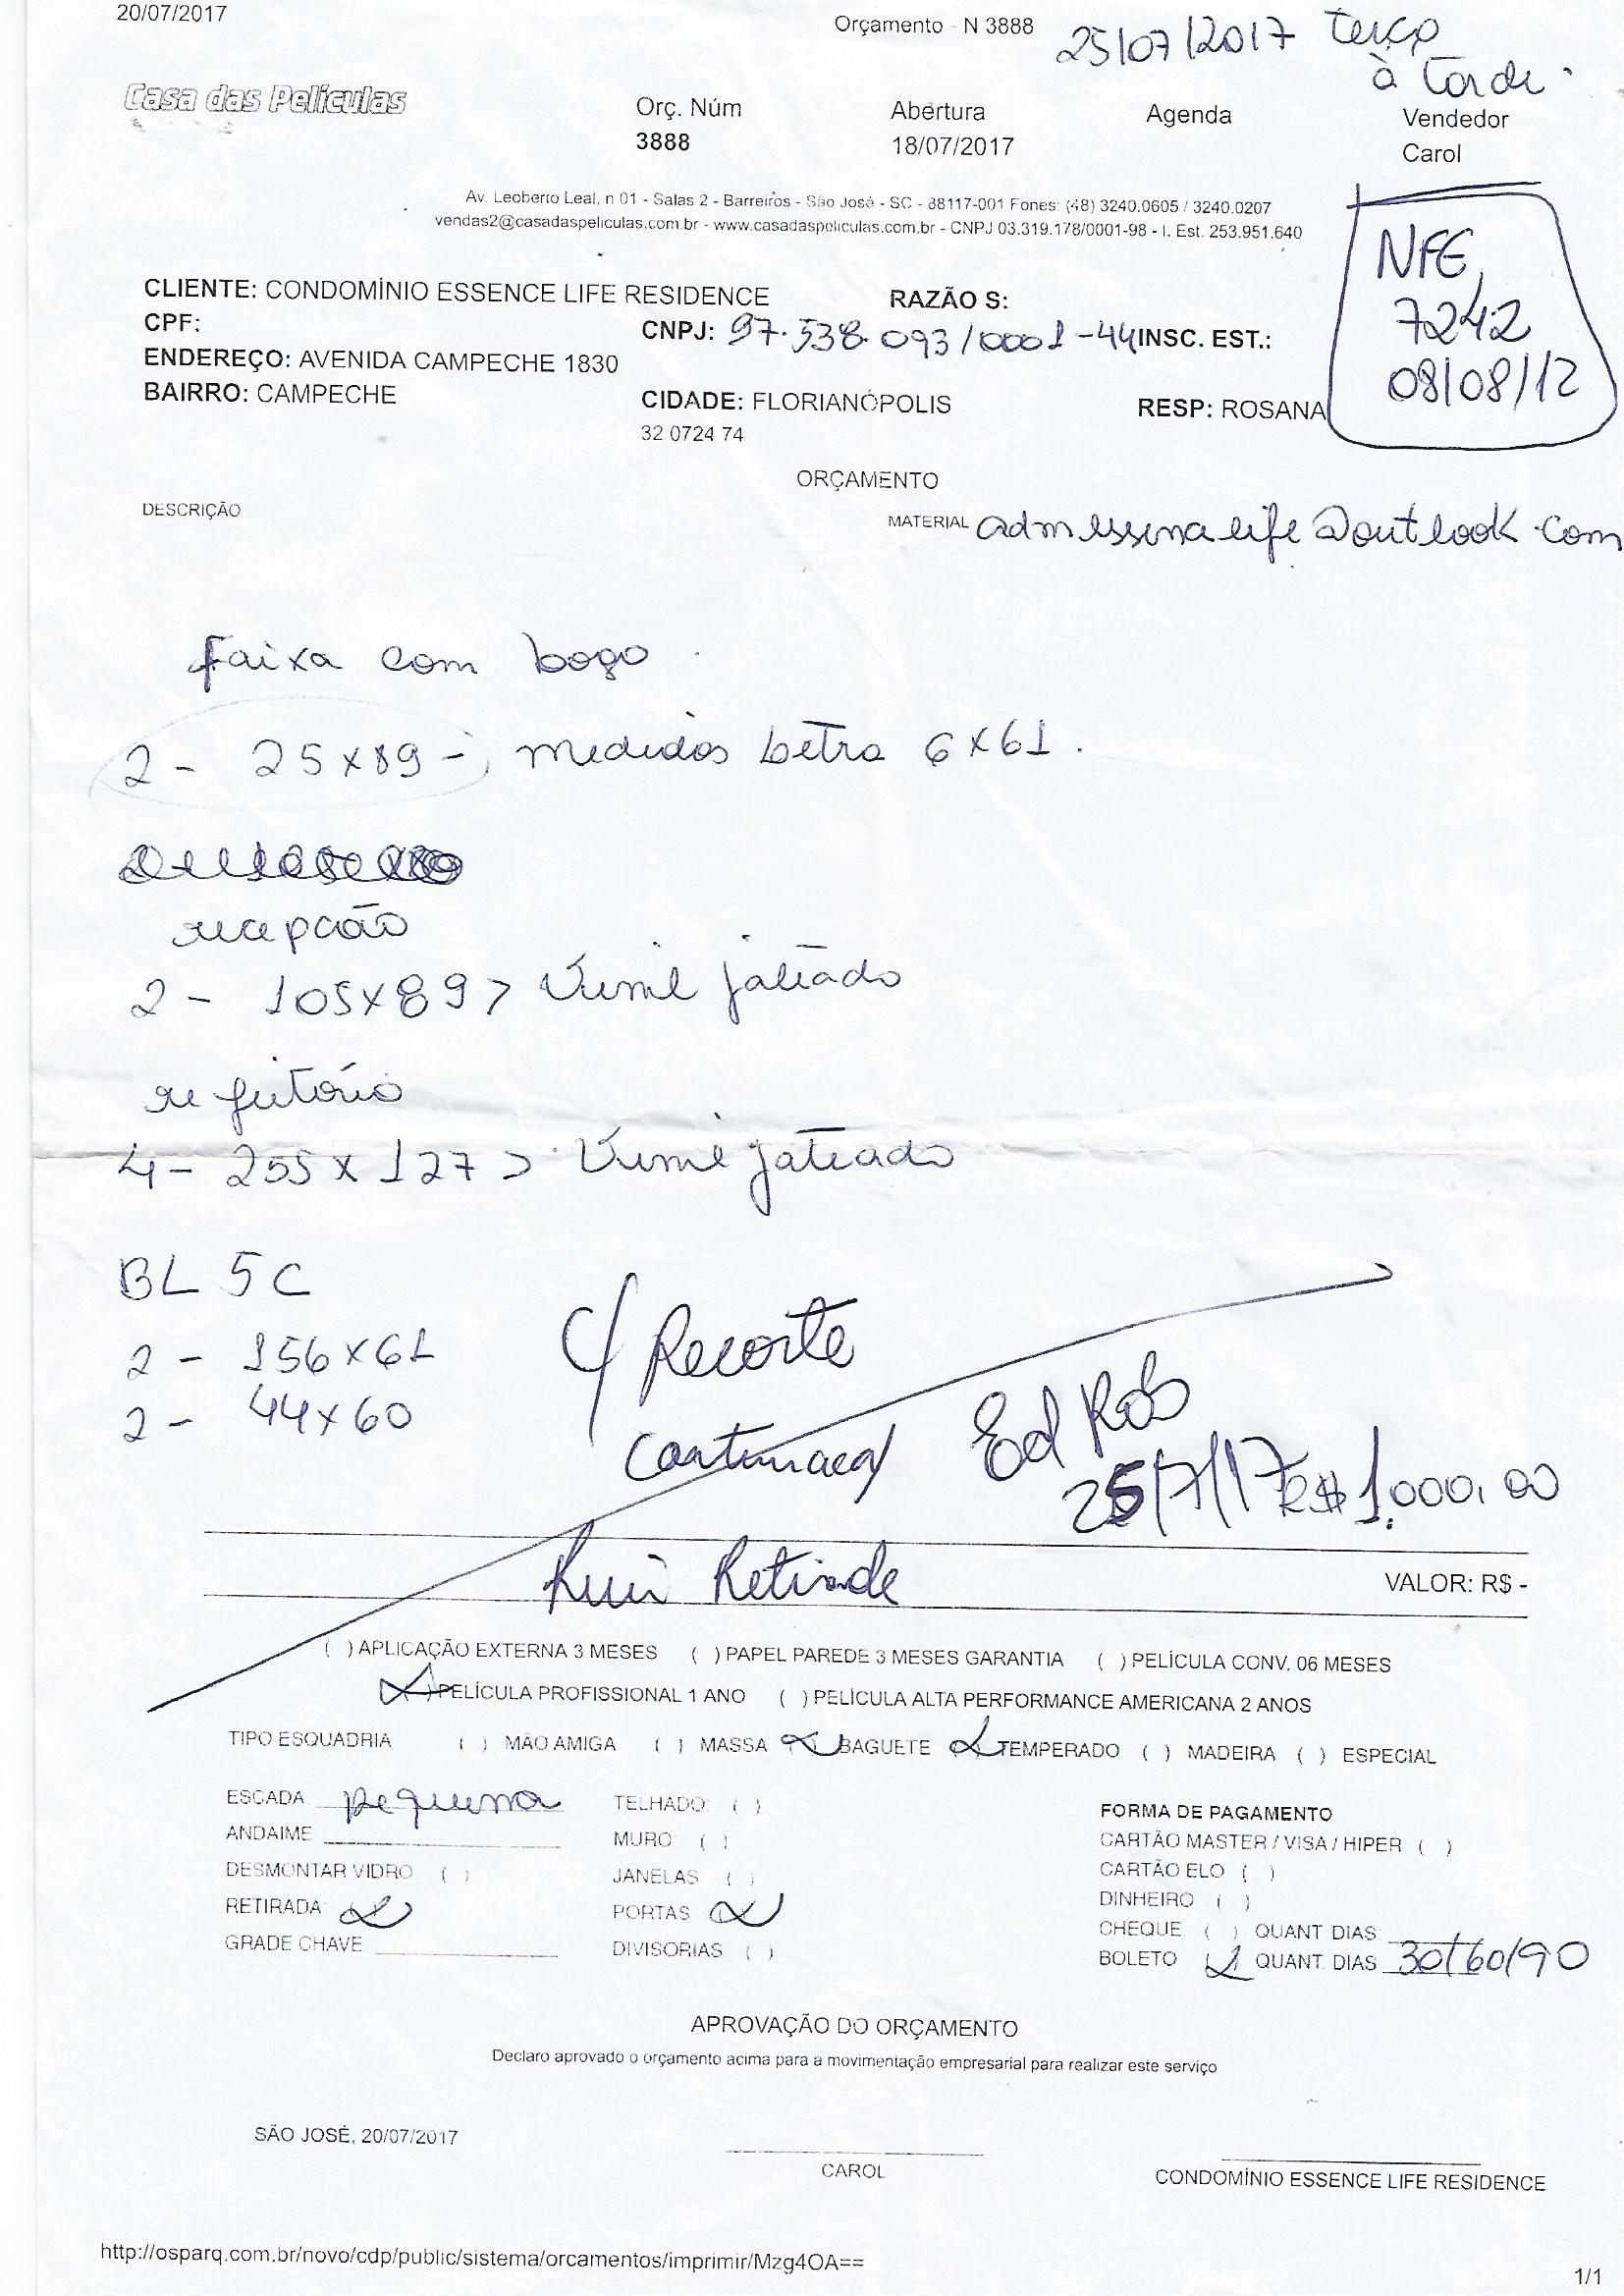 20/07/2017
Orçamento - N 3888
25/07/2017 terça
à tarde
Casa das Películas
Orç. Núm
3888
Abertura
18/07/2017
Agenda
Vendedor
Carol
Av. Leoberto Leal, n 01 - Salas 2 - Barreiros - São José - SC - 88117-001 Fones: (48) 3240.0605 / 3240.0207
vendas2@casadaspeliculas.com.br - www.casadaspeliculas.com.br - CNPJ 03.319.178/0001-98 - I. Est. 253.951.640
NFE
7242
08/08/12
CLIENTE: CONDOMÍNIO ESSENCE LIFE RESIDENCE RAZÃO S:
CPF: CNPJ: 97.538.093/0001-44 INSC. EST.:
ENDEREÇO: AVENIDA CAMPECHE 1830
BAIRRO: CAMPECHE CIDADE: FLORIANÓPOLIS RESP: ROSANA
32 0724 74
ORÇAMENTO
DESCRIÇÃO MATERIAL
faixa com
2 - 25x89 - medidas letra 6x61.
recepção
2 - 105x89 > jateado
refeitório
4 - 255x127 > jateado
BL 5C
2 - 156x61
2 - 44x60
C/ Recorte
25/7/17 R$ 1.000,00
VALOR: R$ -
( ) APLICAÇÃO EXTERNA 3 MESES ( ) PAPEL PAREDE 3 MESES GARANTIA ( ) PELÍCULA CONV. 06 MESES
(X) PELÍCULA PROFISSIONAL 1 ANO ( ) PELÍCULA ALTA PERFORMANCE AMERICANA 2 ANOS
TIPO ESQUADRIA ( ) MÃO AMIGA ( ) MASSA (X) BAGUETE (X) TEMPERADO ( ) MADEIRA ( ) ESPECIAL
ESCADA pequena TELHADO: ( ) FORMA DE PAGAMENTO
ANDAIME MURO ( ) CARTÃO MASTER / VISA / HIPER ( )
DESMONTAR VIDRO ( ) JANELAS ( ) CARTÃO ELO ( )
RETIRADA (X) PORTAS (X) DINHEIRO ( )
GRADE CHAVE DIVISORIAS ( ) CHEQUE ( ) QUANT DIAS
BOLETO (X) QUANT. DIAS 30/60/90
APROVAÇÃO DO ORÇAMENTO
Declaro aprovado o orçamento acima para a movimentação empresarial para realizar este serviço
SÃO JOSÉ, 20/07/2017
CAROL
CONDOMÍNIO ESSENCE LIFE RESIDENCE
http://osparq.com.br/novo/cdp/public/sistema/orcamentos/imprimir/Mzg4OA==
1/1